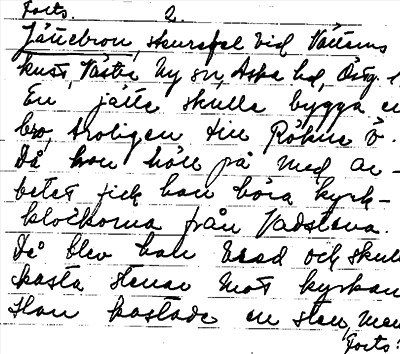 Forts. 2.
Jättebron, skursfel vid Vätterns
kust, Västra Ny sn, Aska hd, Östg.
En jätte skulle bygga en
bro, troligen till Röknе ö.
Då han höll på med ar-
betet fick han höra kyrk-
klockorna från Vadstena.
Då blev han vred och skull
kasta stenar mot kyrkan
Han kastade en sten, men
Forts.